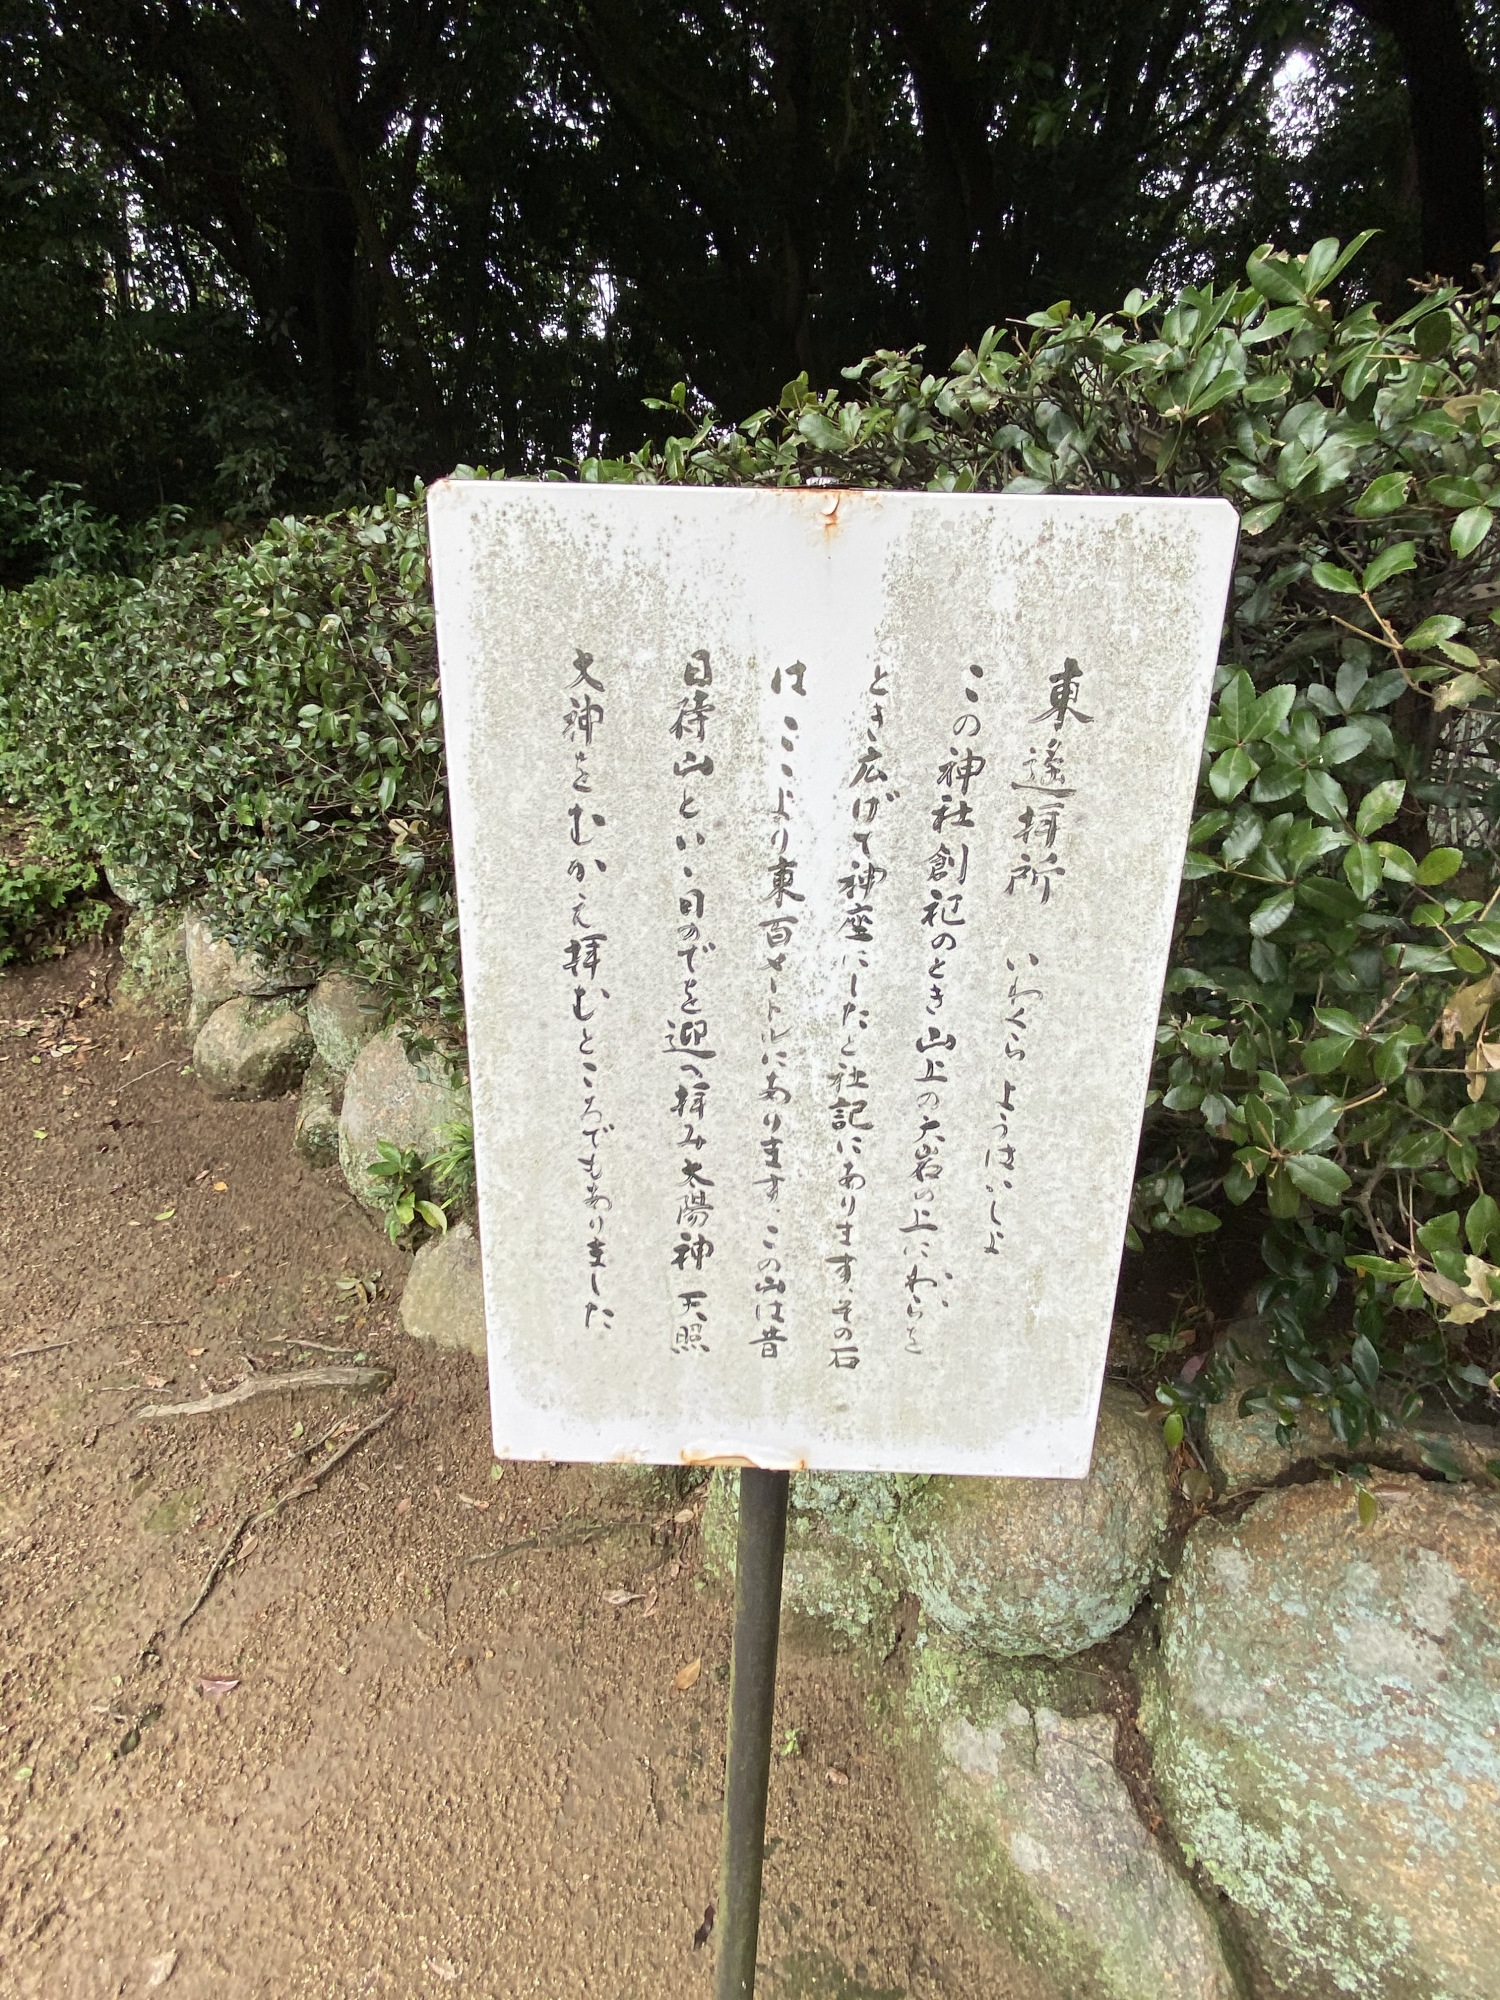 東遙拝所 いわくらようはいしょ
この神社創祀のとき山上の大岩の上にわらを
とき広げて神座にしたと社記にあります、その石
はここより東百メートルにあります、この山は昔
日待山といい日のでを迎へ拝み太陽神天照
大神をむかえ拝むところでもありました